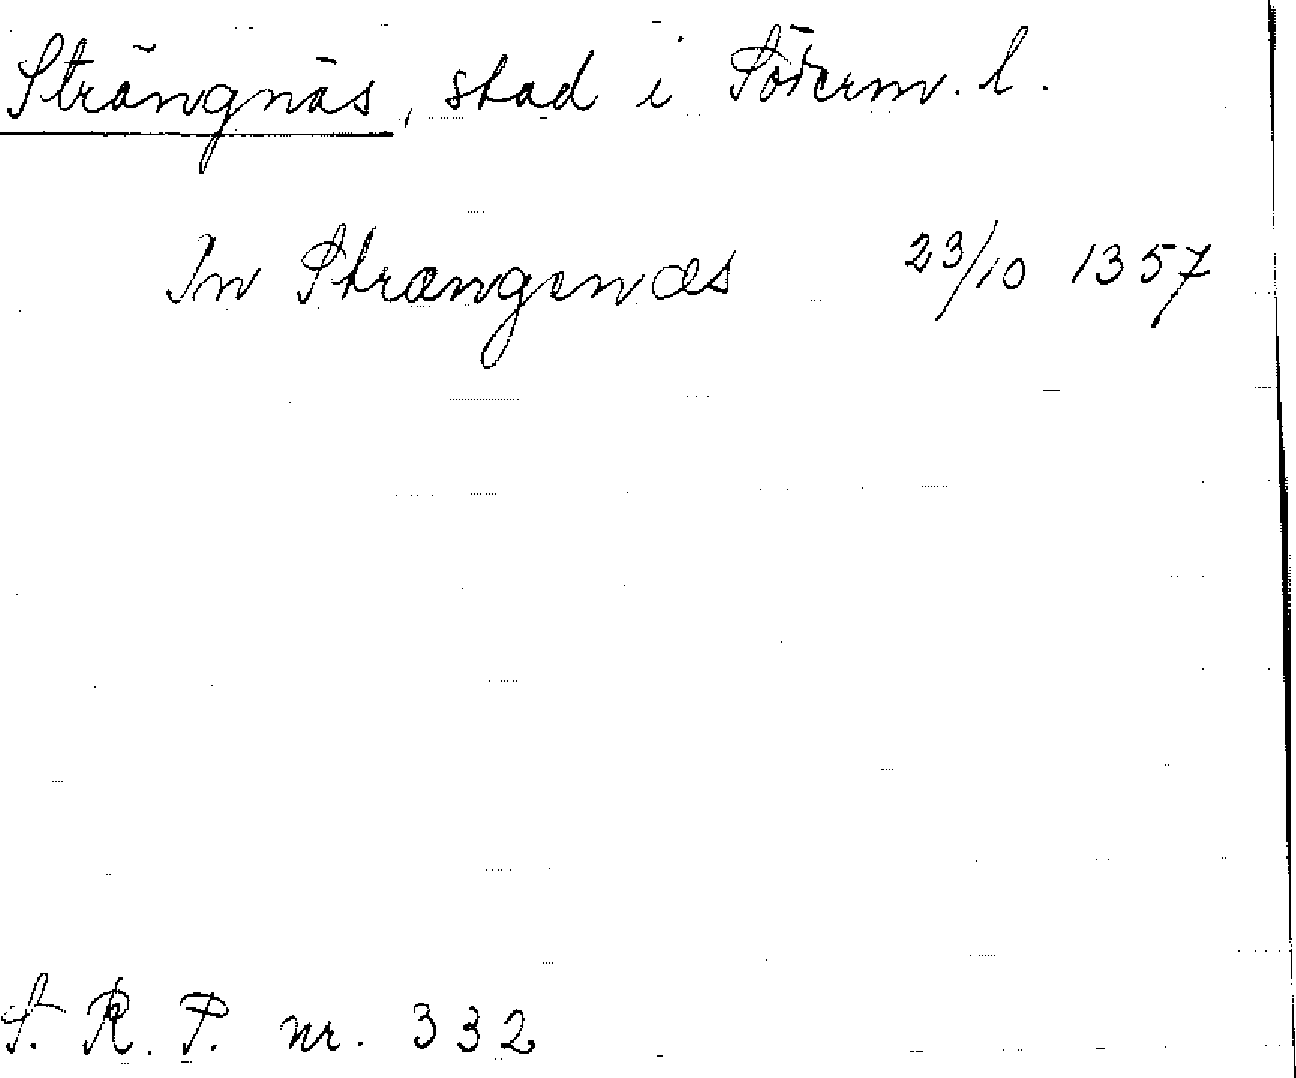 Strängnäs, stad i Söderm. l.
In Strængenæs 23/10 1357
S. R. P. nr. 332